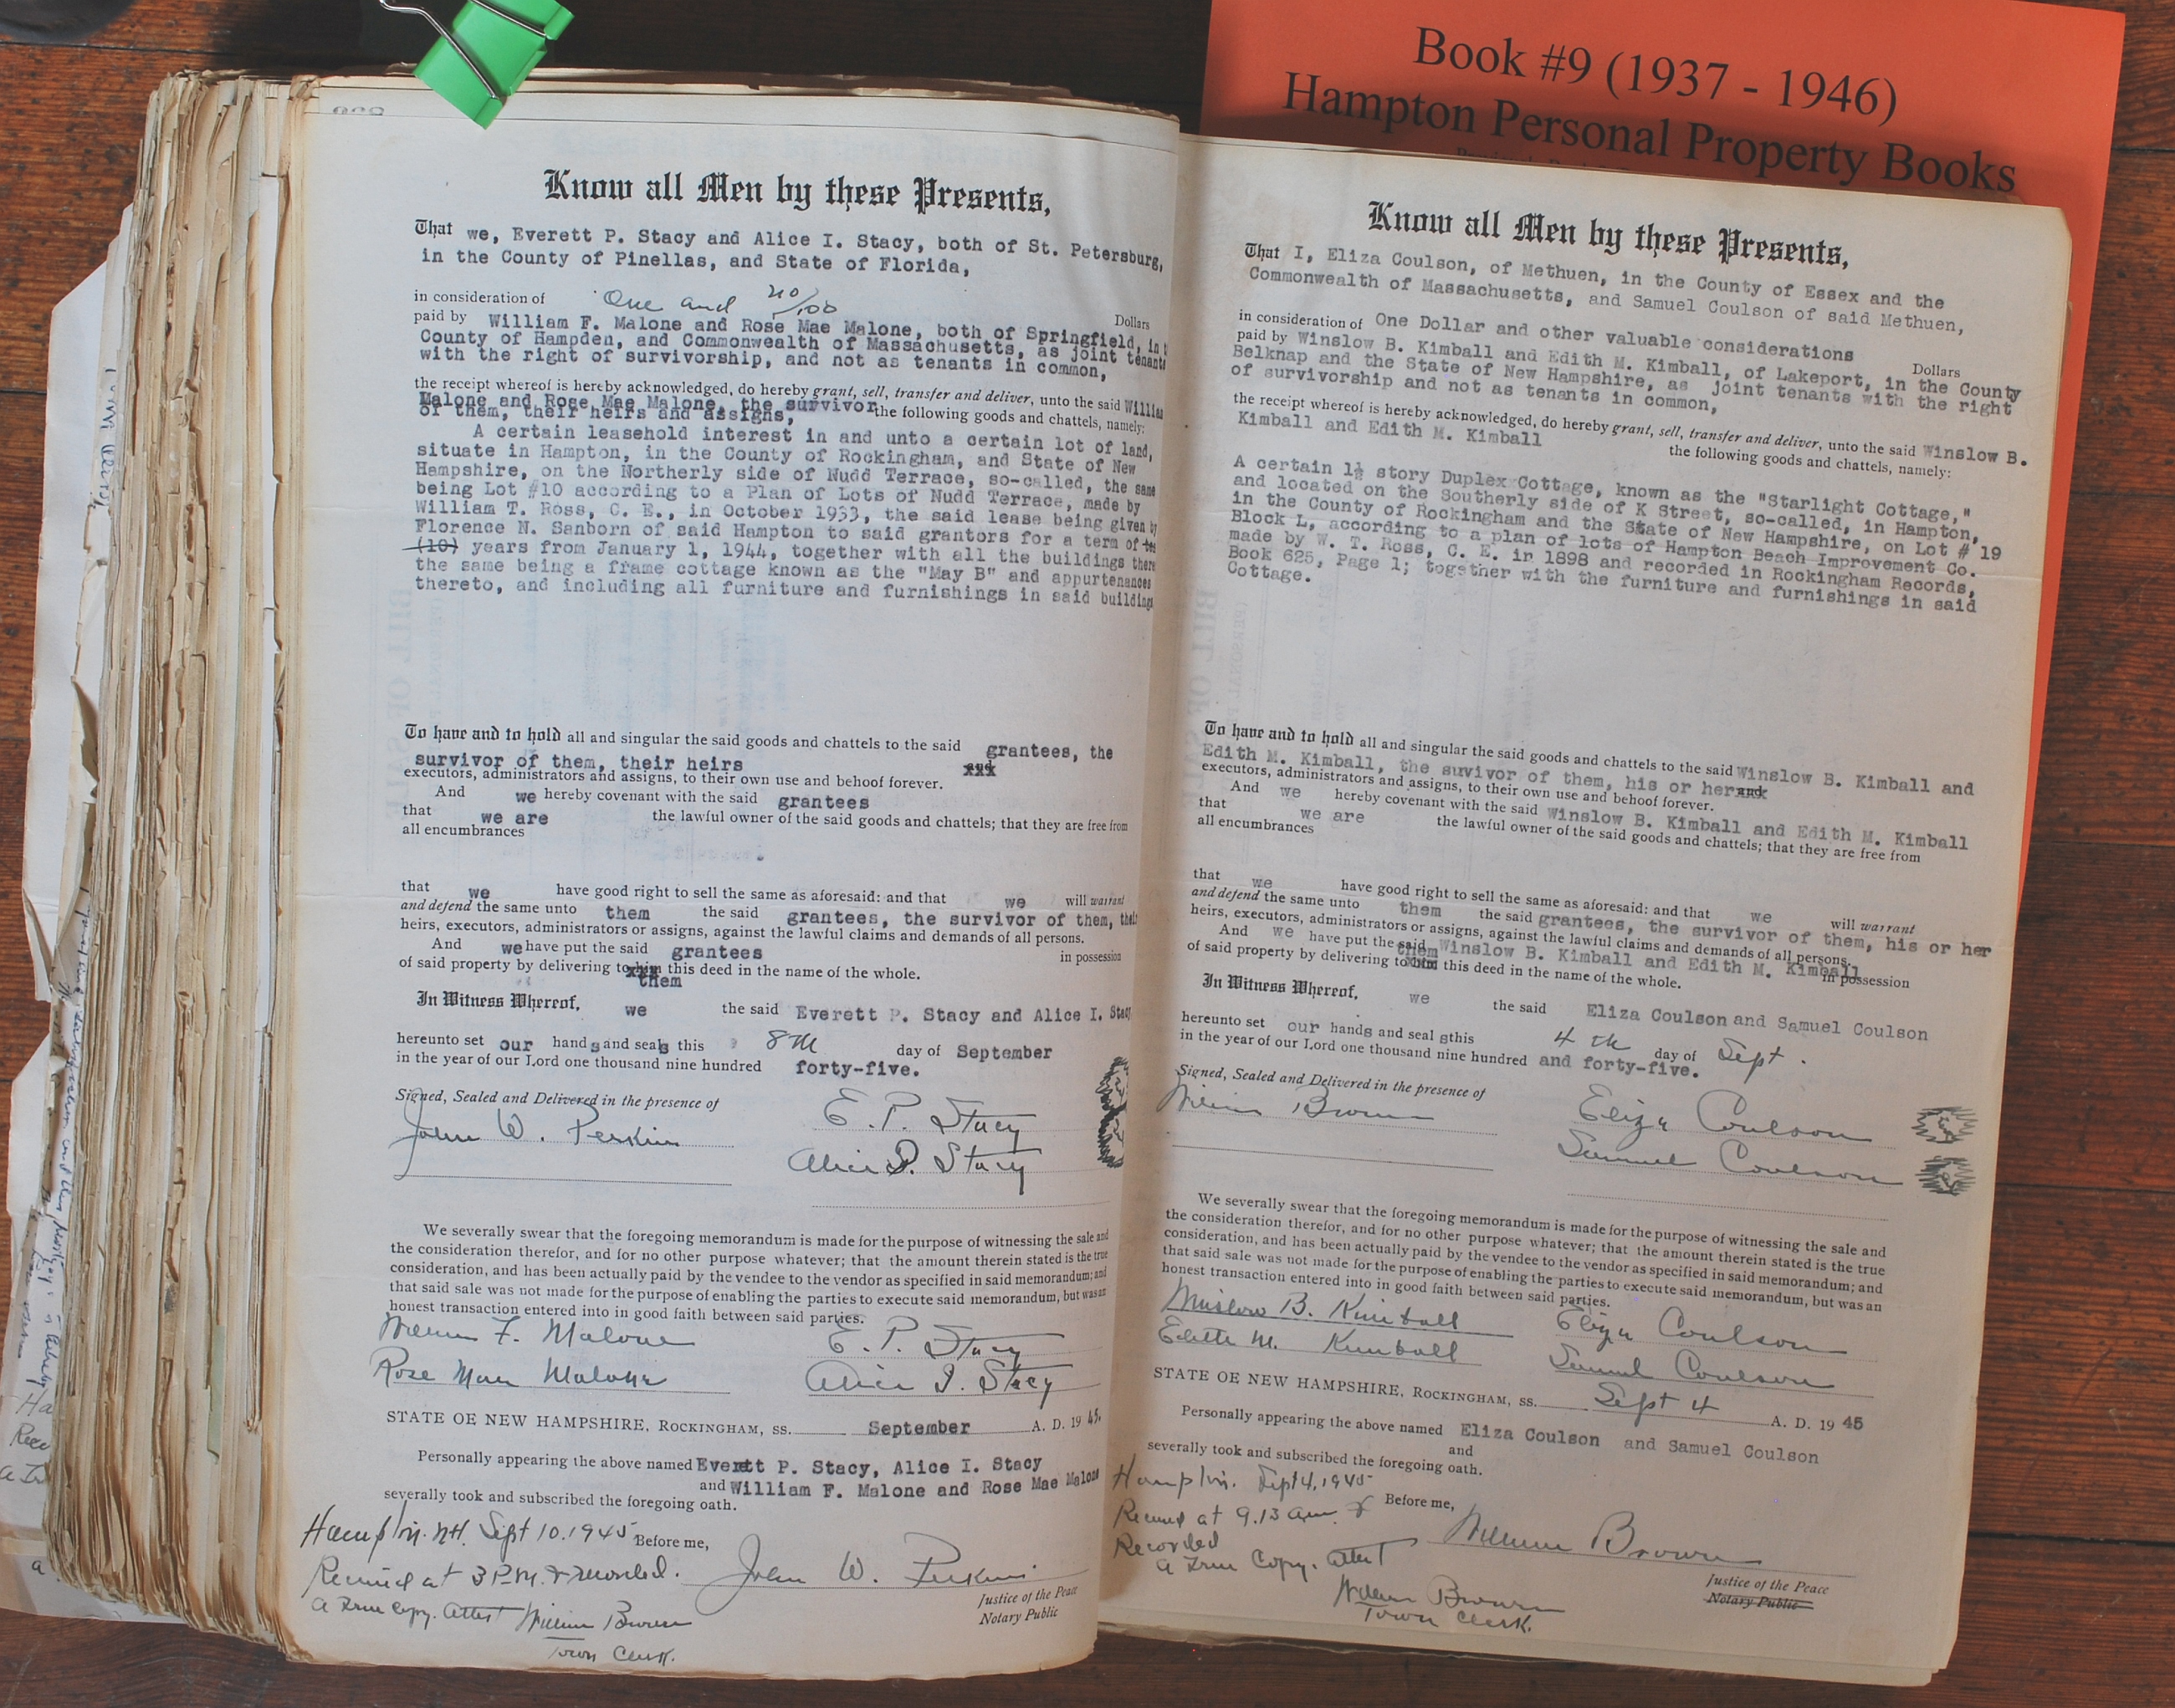 Book #9 (1937 - 1946)
Hampton Personal Property Books
Know all Men by these Presents,
That we, Everett P. Stacy and Alice I. Stacy, both of St. Petersburg,
in the County of Pinellas, and State of Florida,
in consideration of One and no/100 Dollars
paid by William F. Malone and Rose Mae Malone, both of Springfield, in
County of Hampden, and Commonwealth of Massachusetts, as joint tenants
with the right of survivorship, and not as tenants in common,
the receipt whereof is hereby acknowledged, do hereby grant, sell, transfer and deliver, unto the said William
Malone and Rose Mae Malone, the survivor
of them, their heirs and assigns, the following goods and chattels, namely:
A certain leasehold interest in and unto a certain lot of land,
situate in Hampton, in the County of Rockingham, and State of New
Hampshire, on the Northerly side of Nudd Terrace, so-called, the same
being Lot #10 according to a Plan of Lots of Nudd Terrace, made by
William T. Ross, C. E., in October 1933, the said lease being given by
Florence N. Sanborn of said Hampton to said grantors for a term of ten
(10) years from January 1, 1944, together with all the buildings there
the same being a frame cottage known as the "May B" and appurtenances
thereto, and including all furniture and furnishings in said buildings
To have and to hold all and singular the said goods and chattels to the said grantees, the
survivor of them, their heirs xxx
executors, administrators and assigns, to their own use and behoof forever.
And we hereby covenant with the said grantees
that we are the lawful owner of the said goods and chattels; that they are free from
all encumbrances
that we have good right to sell the same as aforesaid: and that we will warrant
and defend the same unto them the said grantees, the survivor of them, their
heirs, executors, administrators or assigns, against the lawful claims and demands of all persons.
And we have put the said grantees in possession
of said property by delivering to him this deed in the name of the whole.
them
In Witness Whereof, we the said Everett P. Stacy and Alice I. Stacy
hereunto set our hands and seals this 8th day of September
in the year of our Lord one thousand nine hundred forty-five.
Signed, Sealed and Delivered in the presence of
John W. Perkins E. P. Stacy
Alice I. Stacy
We severally swear that the foregoing memorandum is made for the purpose of witnessing the sale and
the consideration therefor, and for no other purpose whatever; that the amount therein stated is the true
consideration, and has been actually paid by the vendee to the vendor as specified in said memorandum; and
that said sale was not made for the purpose of enabling the parties to execute said memorandum, but was an
honest transaction entered into in good faith between said parties.
William F. Malone E. P. Stacy
Rose Mae Malone Alice I. Stacy
STATE OE NEW HAMPSHIRE, ROCKINGHAM, SS. September A. D. 1945.
Personally appearing the above named Everett P. Stacy, Alice I. Stacy
and William F. Malone and Rose Mae Malone
severally took and subscribed the foregoing oath.
Hampton. N.H. Sept 10. 1945 Before me,
Received at 3 P.M. & recorded. John W. Perkins
a True Copy. Attest William Brown Justice of the Peace
Notary Public
Town Clerk.
Know all Men by these Presents,
That I, Eliza Coulson, of Methuen, in the County of Essex and the
Commonwealth of Massachusetts, and Samuel Coulson of said Methuen,
in consideration of One Dollar and other valuable considerations Dollars
paid by Winslow B. Kimball and Edith M. Kimball, of Lakeport, in the County
Belknap and the State of New Hampshire, as joint tenants with the right
of survivorship and not as tenants in common,
the receipt whereof is hereby acknowledged, do hereby grant, sell, transfer and deliver, unto the said Winslow B.
Kimball and Edith M. Kimball the following goods and chattels, namely:
A certain 1½ story Duplex Cottage, known as the "Starlight Cottage,"
and located on the Southerly side of K Street, so-called, in Hampton,
in the County of Rockingham and the State of New Hampshire, on Lot # 19
Block L, according to a plan of lots of Hampton Beach Improvement Co.
made by W. T. Ross, C. E. in 1898 and recorded in Rockingham Records,
Book 625, Page 1; together with the furniture and furnishings in said
Cottage.
To have and to hold all and singular the said goods and chattels to the said Winslow B. Kimball and
Edith M. Kimball, the suvivor of them, his or her and
executors, administrators and assigns, to their own use and behoof forever.
And we hereby covenant with the said Winslow B. Kimball and Edith M. Kimball
that we are the lawful owner of the said goods and chattels; that they are free from
all encumbrances
that we have good right to sell the same as aforesaid: and that we will warrant
and defend the same unto them the said grantees, the survivor of them, his or her
heirs, executors, administrators or assigns, against the lawful claims and demands of all persons.
And we have put the said Winslow B. Kimball and Edith M. Kimball in possession
them
of said property by delivering to him this deed in the name of the whole.
In Witness Whereof, we the said Eliza Coulson and Samuel Coulson
hereunto set our hands and seal sthis 4th day of Sept.
in the year of our Lord one thousand nine hundred and forty-five.
Signed, Sealed and Delivered in the presence of
William Brown Eliza Coulson
Samuel Coulson
We severally swear that the foregoing memorandum is made for the purpose of witnessing the sale and
the consideration therefor, and for no other purpose whatever; that the amount therein stated is the true
consideration, and has been actually paid by the vendee to the vendor as specified in said memorandum; and
that said sale was not made for the purpose of enabling the parties to execute said memorandum, but was an
honest transaction entered into in good faith between said parties.
Winslow B. Kimball Eliza Coulson
Edith M. Kimball Samuel Coulson
STATE OE NEW HAMPSHIRE, ROCKINGHAM, SS. Sept 4 A. D. 1945
Personally appearing the above named Eliza Coulson and Samuel Coulson
and
severally took and subscribed the foregoing oath.
Hampton. Sept 4, 1945
Received at 9.13 am. & Before me,
Recorded William Brown
a True Copy. Attest
William Brown Justice of the Peace
Town Clerk. Notary Public